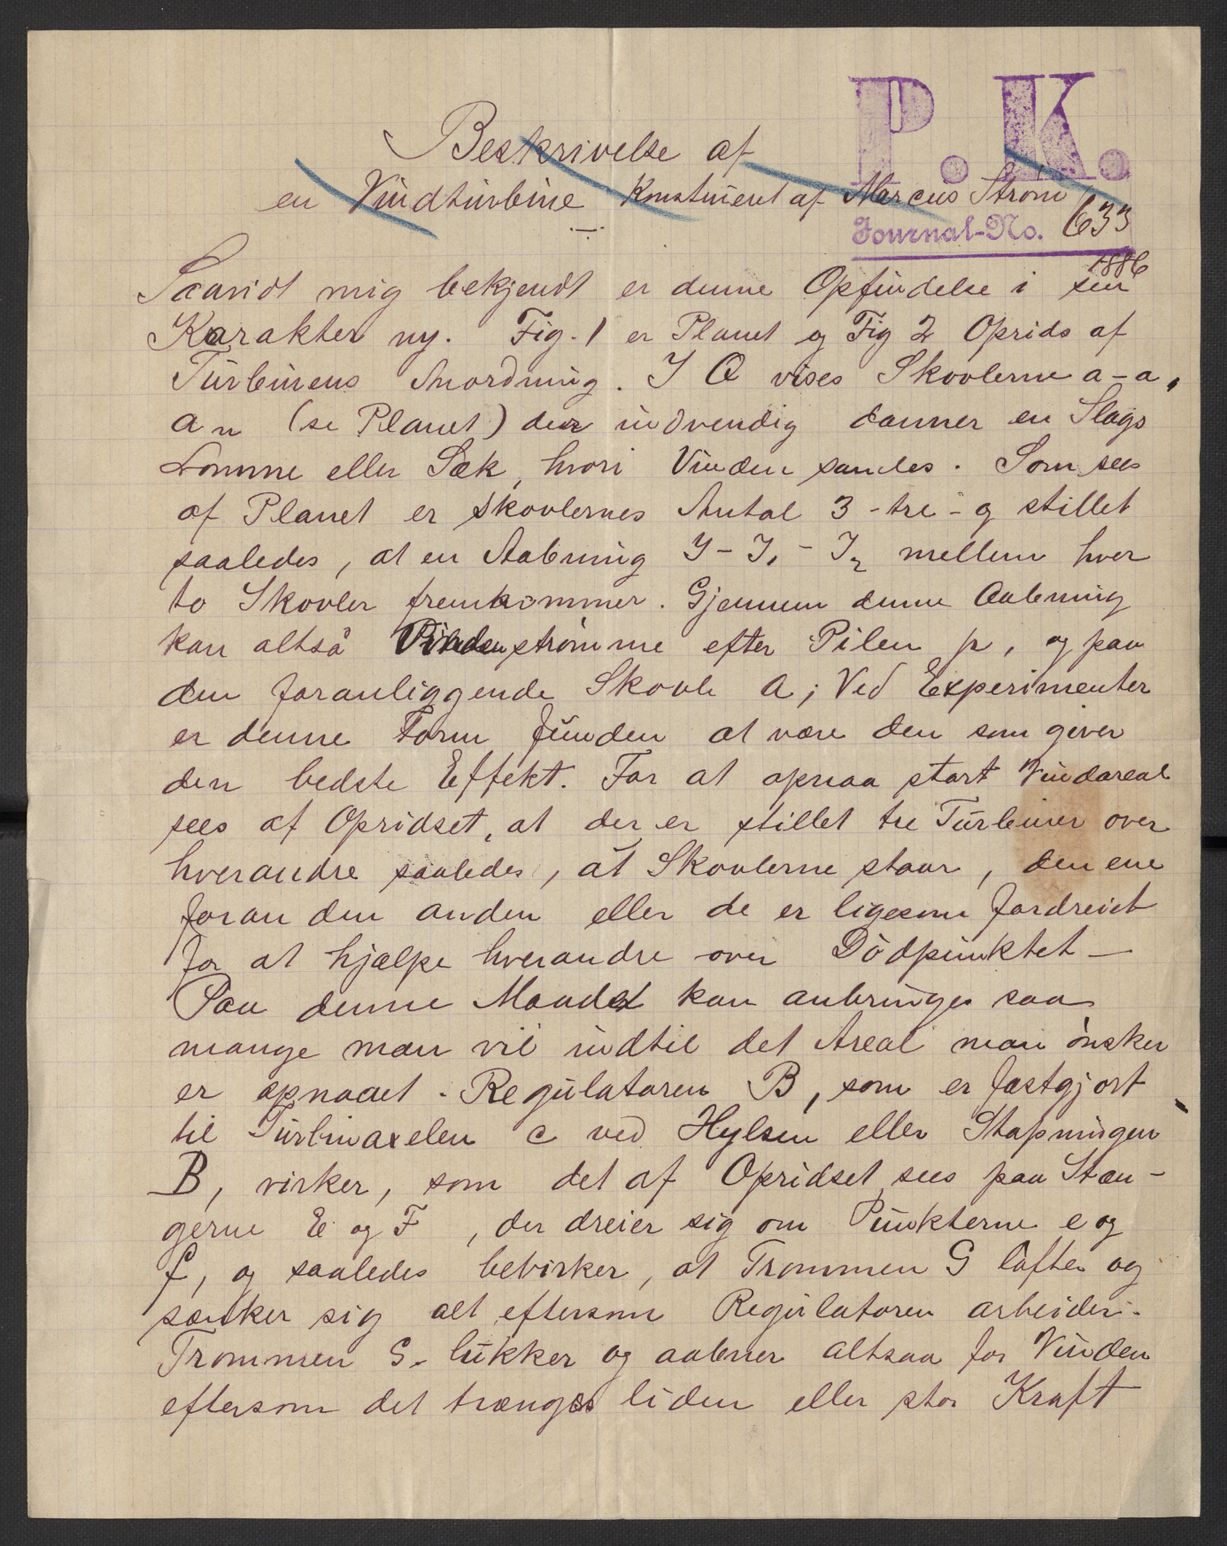 P. K.
Beskrivelse af
en Vindturbine Konstrueret af Marcus Strøm
Journal-No. 633
1886
Saavidt mig bekjendt er denne Opfindelse i sin
Karakter ny. Fig. 1 er Planet og Fig 2 Oprids af
Turbinens Anordning. I A vises Skovlerne a-a,
a2 (se Planet) der indvendig danner en Slags
Lomme eller Sæk, hvori Vinden samles. Som sees
af Planet er Skovlernes Antal 3 -tre- og stillet
saaledes, at en Aabning I-I1-I2 mellem hver
to Skovler fremkommer. Gjennem denne Aabning
kan altså Vinden strømme efter Pilen p, og paa
den foranliggende Skovl a; Ved Experimenter
er denne Form funden at være den som giver
den bedste Effekt. For at opnaa stort Vindareal
sees af Opridset, at der er stillet tre Turbiner over
hverandre saaledes, at Skovlerne staar, den ene
foran den anden eller de er ligesom fordreiet
for at hjælpe hverandre over Dödpunktet —
Paa denne Maade kan anbringes saa
mange man vil indtil det Areal man ønsker
er opnaaet. Regulatoren B, som er fastgjort
til Turbinaxelen c ved Hylsen eller Støpningen
B, virker, som det af Opridset sees paa Stæn-
gerne E og F, der dreier sig om Punkterne e og
f, og saaledes bevirker, at Trommen G løfter og
sænker sig alt eftersom Regulatoren arbeider.
Trommen G. lukker og aabner altsaa for Vinden
eftersom det trænges liden eller stor Kraft